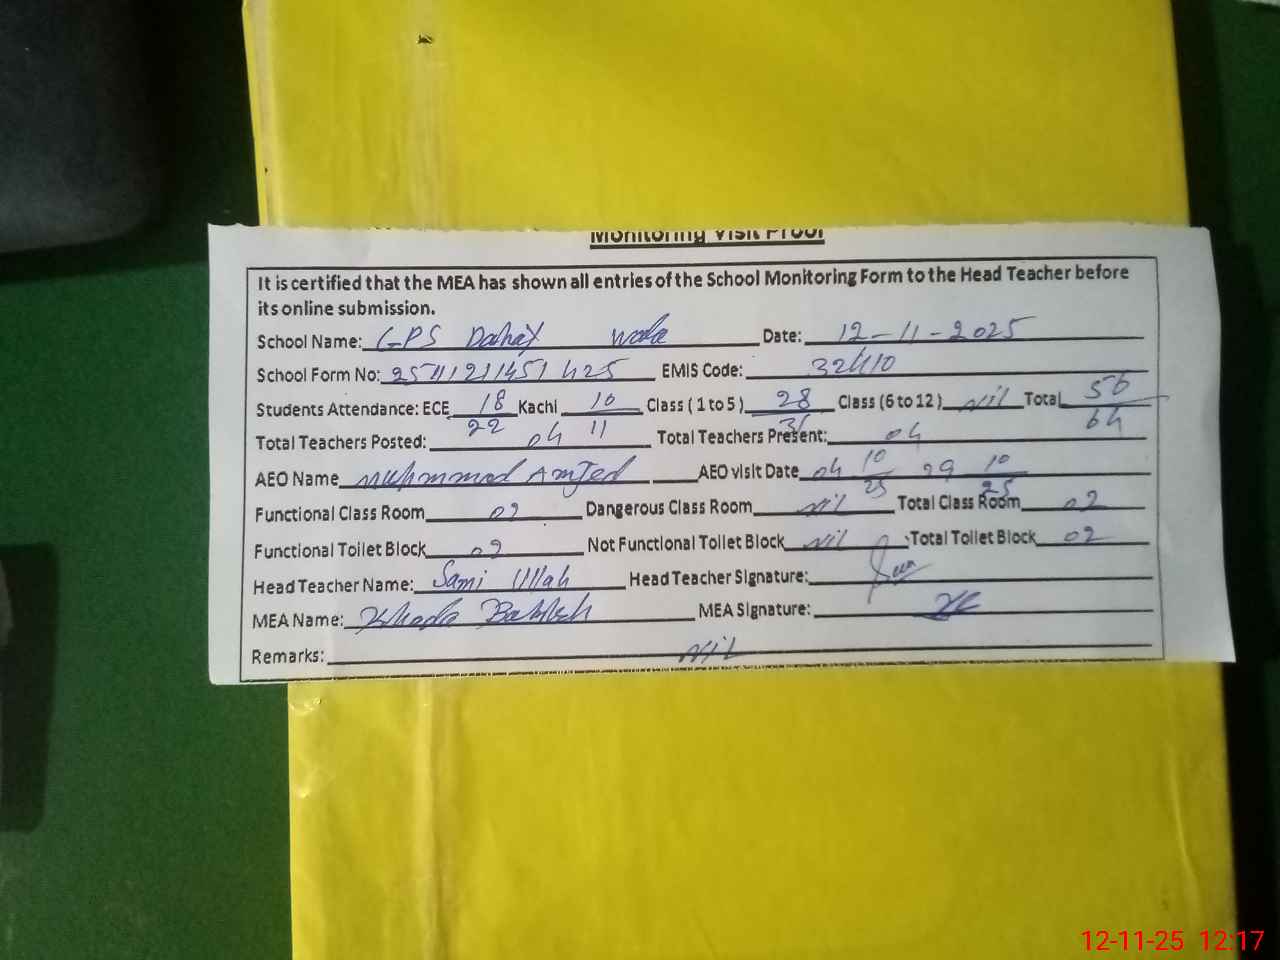 Monitoring Visit Proof
It is certified that the MEA has shown all entries of the School Monitoring Form to the Head Teacher before
its online submission.
School Name: GPS Dahay wala Date: 12-11-2025
School Form No: EMIS Code:
Students Attendance: ECE 18/22 Kachi 10/11 Class (1 to 5) 28/31 Class (6 to 12) Nil Total 56/64
Total Teachers Posted: 04 Total Teachers Present: 04
AEO Name Muhmmad Amjed AEO visit Date 04 10/25 29 10/25
Functional Class Room 02 Dangerous Class Room Nil Total Class Room 02
Functional Toilet Block 02 Not Functional Toilet Block Nil Total Toilet Block 02
Head Teacher Name: Sami Ullah Head Teacher Signature:
MEA Name: Khuda Bakhsh MEA Signature:
Remarks: Nil
12-11-25 12:17